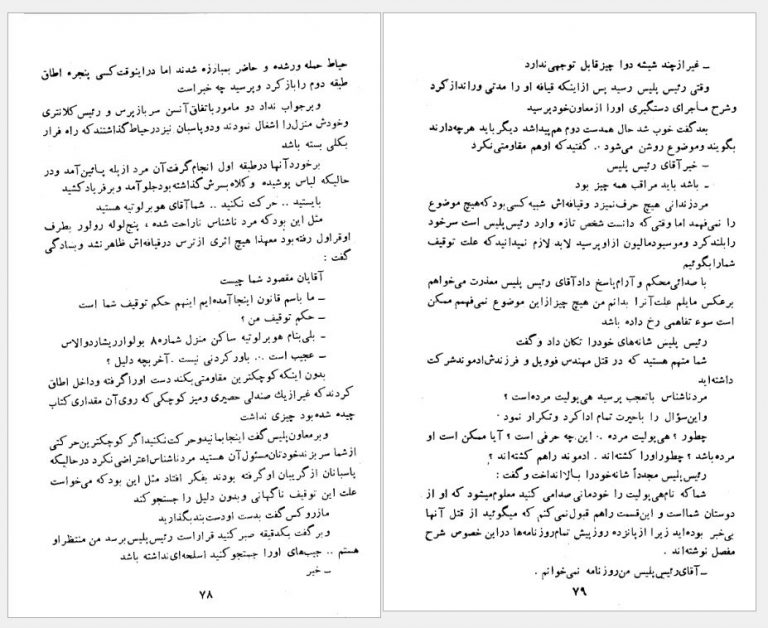 حیاط حمله ور شده و حاضر بمبارزه شدند اما در اینوقت کسی پنجره اطاق
طبقه دوم را باز کرد و پرسید چه خبر است
وبر جواب نداد دو مامور باتفاق آنسن سر بازپرس و رئیس کلانتری
وخودش منزل را اشغال نمودند ودو پاسبان نیز در حیاط گذاشتند که راه فرار
بکلی بسته باشد
برخورد آنها در طبقه اول انجام گرفت آن مرد از پله پائین آمد ودر
حالیکه لباس پوشیده و کلاه بسرش گذاشته بود جلو آمد وبر فریاد کشید
بایستید .. حرکت نکنید .. شما آقای هوبر لوتیه هستید
مثل این بود که مرد ناشناس ناراحت شده ، پنج لوله رولور بطرف
او قراول رفته بود معهذا هیچ اثری از ترس در قیافه اش ظاهر نشد و بسادگی
گفت :
آقایان مقصود شما چیست
ــ ما باسم قانون اینجا آمده ایم اینهم حکم توقیف شما است
ــ حکم توقیف من ؟
ــ بلی بنام هوبر لوتیه ساکن منزل شماره ۸ بولوار ریشارد والاس
ــ عجیب است .. باور کردنی نیست . آخر بچه دلیل ؟
بدون اینکه کوچکترین مقاومتی بکند دست او را گرفته و داخل اطاق
کردند که غیر از یك صندلی حصیری و میز کوچکی که روی آن مقداری کتاب
چیده شده بود چیزی نداشت
وبر معاون پلیس گفت اینجا بمانید و حرکت نکنید اگر کوچکترین حرکتی
از شما سر بزند خودتان مسئول آن هستید مرد ناشناس اعتراضی نکرد در حالیکه
پاسبانان از گریبان او گرفته بودند بفکر افتاد مثل این بود که می خواست
علت این توقیف ناگهانی و بدون دلیل را جستجو کند
مازروکس گفت بدست او دست بند بگذارید
وبر گفت یکدقیقه صبر کنید قرار است رئیس پلیس برسد من منتظر او
هستم .. جیب های او را جستجو کنید اسلحه ای نداشته باشد
ــ خیر
۷۸
ــ غیر از چند شیشه دوا چیز قابل توجهی ندارد
وقتی رئیس پلیس رسید پس از اینکه قیافه او را مدتی ورانداز کرد
وشرح ماجرای دستگیری او را از معاون خود پرسید
بعد گفت خوب شد حال همدست دوم هم پیدا شد دیگر باید هرچه دارند
بگویند و موضوع روشن می شود .. گفتید که او هم مقاومتی نکرد
ــ خیر آقای رئیس پلیس
ــ باشد باید مراقب همه چیز بود
مرد زندانی هیچ حرف نمیزد و قیافه اش شبیه کسی بود که هیچ موضوع
را نمی فهمد اما وقتی که دانست شخص تازه وارد رئیس پلیس است سر خود
را بلند کرد و موسیو دمالیون از او پرسید لابد لازم نمیدانید که علت توقیف
شما را بگوئیم
با صدائی محکم و آرام پاسخ داد آقای رئیس پلیس معذرت می خواهم
برعکس مایلم علت آنرا بدانم من هیچ چیز از این موضوع نمی فهمم ممکن
است سوء تفاهمی رخ داده باشد
رئیس پلیس شانه های خود را تکان داد و گفت
شما متهم هستید که در قتل مهندس فوویل و فرزندش ادموند شرکت
داشته اید
مرد ناشناس با تعجب پرسید هی پولیت مرده است ؟
واین سؤال را با حیرت تمام ادا کرد و تکرار نمود
چطور ؟ هی پولیت مرده .. این چه حرفی است ؟ آیا ممکن است او
مرده باشد ؟ چطور او را کشته اند . ادموند را هم کشته اند ؟
رئیس پلیس مجدداً شانه خود را بالا انداخت و گفت :
شما که نام هی پولیت را خودمانی صدا می کنید معلوم میشود که او از
دوستان شما است و این قسمت را هم قبول نمی کنم که میگوئید از قتل آنها
بی خبر بوده اید زیرا از پانزده روز پیش تمام روزنامه ها در این خصوص شرح
مفصل نوشته اند .
ــ آقای رئیس پلیس من روزنامه نمی خوانم .
۷۹